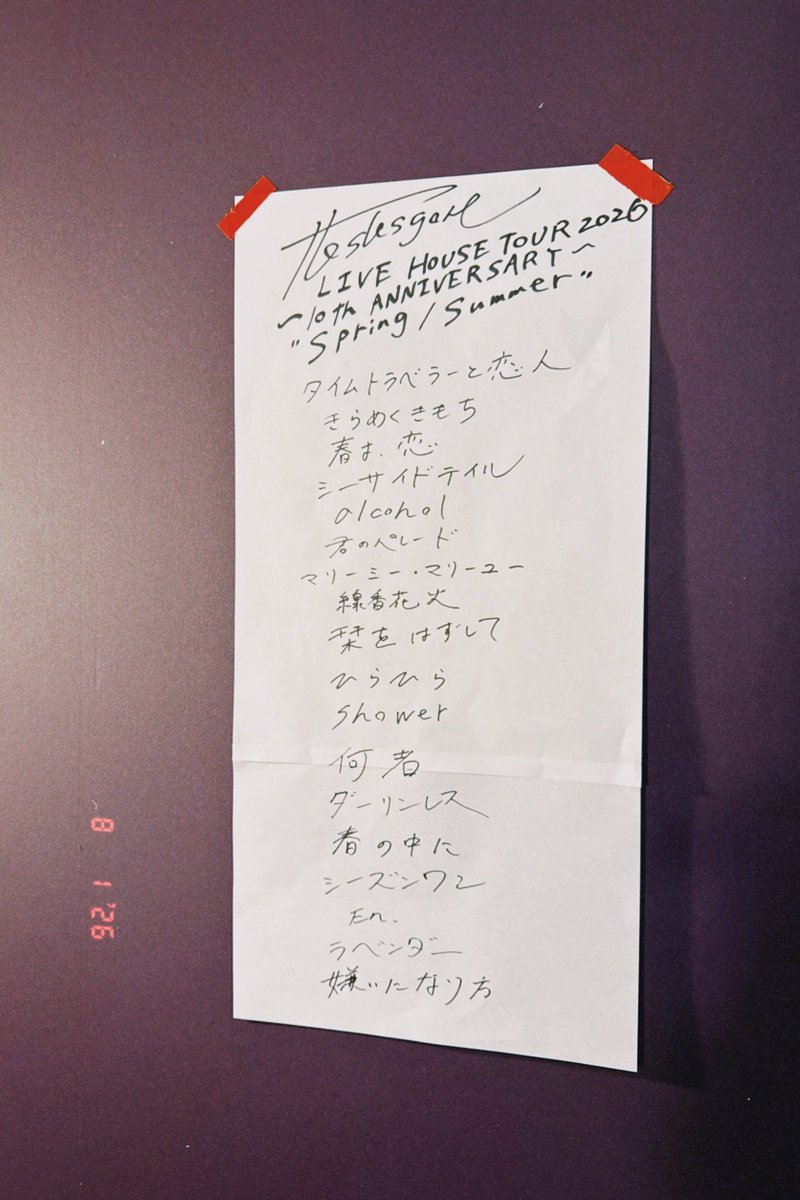 LIVE HOUSE TOUR 2026
〜10th ANNIVERSARY〜
"Spring / Summer"
タイムトラベラーと恋人
きらめくきもち
春は、恋
シーサイドテイル
alcohol
君のパレード
マリーミー・マリーユー
線香花火
栞をはずして
ひらひら
shower
何者
ダーリンレス
春の中に
シーズンワン
En.
ラベンダー
嫌いになり方
8 1 '26